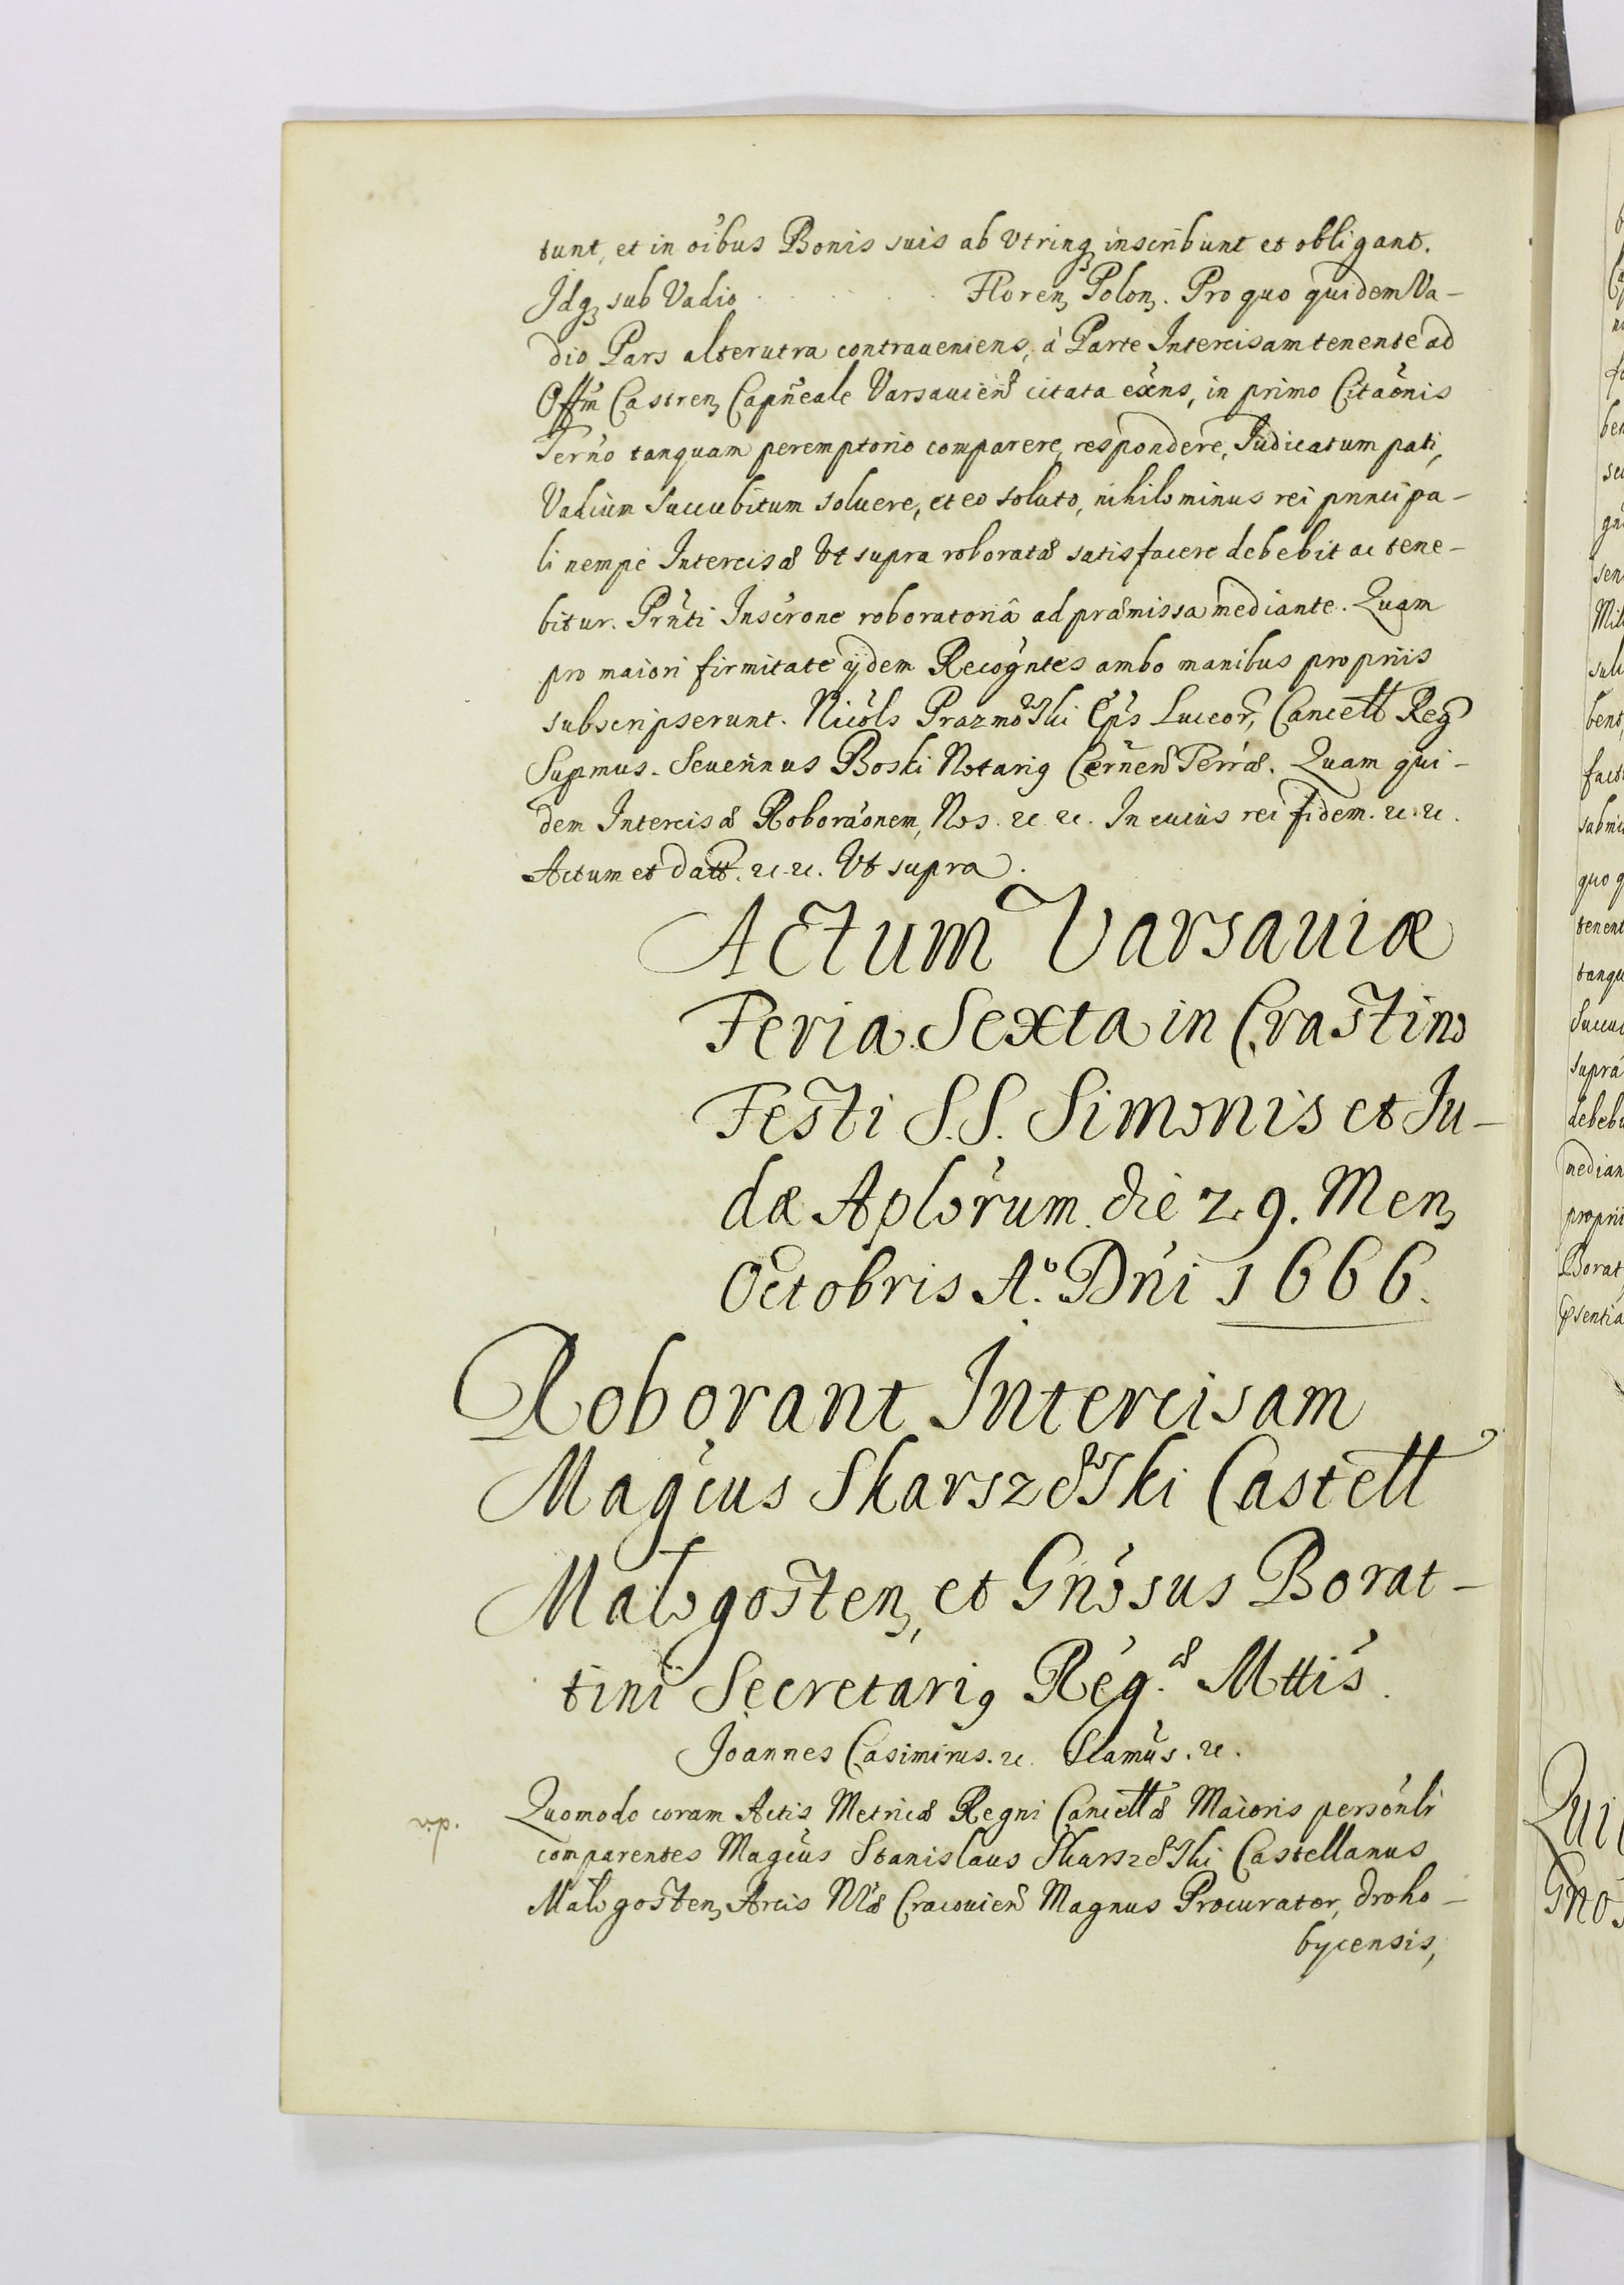 tunt, et in oibus Bonis suis ab Utrinq inscribunt et obligant.
Idq sub Vadio . . . . . Floren Polon. Pro quo quidem Va-
dio Pars alterutra contraueniens, à Parte Intercisam tenente ad
Offm Castren Capneale Varsauien citata exns, in primo Citaonis
Terno tanquam peremptorio comparere, respondere, Iudicatum pati,
Vadium Succubitum soluere, et eo soluto, nihilominus rei principa-
li nempe Intercisæ Ut supra roboratæ satisfacere debebit ac tene-
bitur. Prnti Inscrone roboratoriâ ad præmissa mediante. Quam
pro maiori firmitate ijdem Recogntes ambo manibus proprijs
subscripserunt. Nicols Prazmowski Eps Luceor, Cancell Reg
Supmus. Seuerinus Boski Notarig Cernen Terræ. Quam qui-
dem Intercisæ Roboraonem, Nos. &c. &c. In cuius rei fidem. &c. &c.
Actum et datt. &c. &c. Ut supra.
Actum Varsauiæ
Feria Sexta in Crastino
Festi S.S. Simonis et Iu-
dæ Aplorum die 29. Men
Octobris A.º Dni 1666.
Roborant Intercisam
Magcus Skarszewski Castell
Malogosten, et Gnosus Borat-
tini Secretarig Reg.æ Mttis.
Joannes Casimirus. &c. Slamus. &c.
Quomodo coram Actis Metricæ Regni Cancellæ Maioris personlr
comparentes Magcus Stanislaus Skarszewski Castellanus
Malogosten, Arcis Nræ Cracouien Magnus Procurator, Droho-
bycensis,